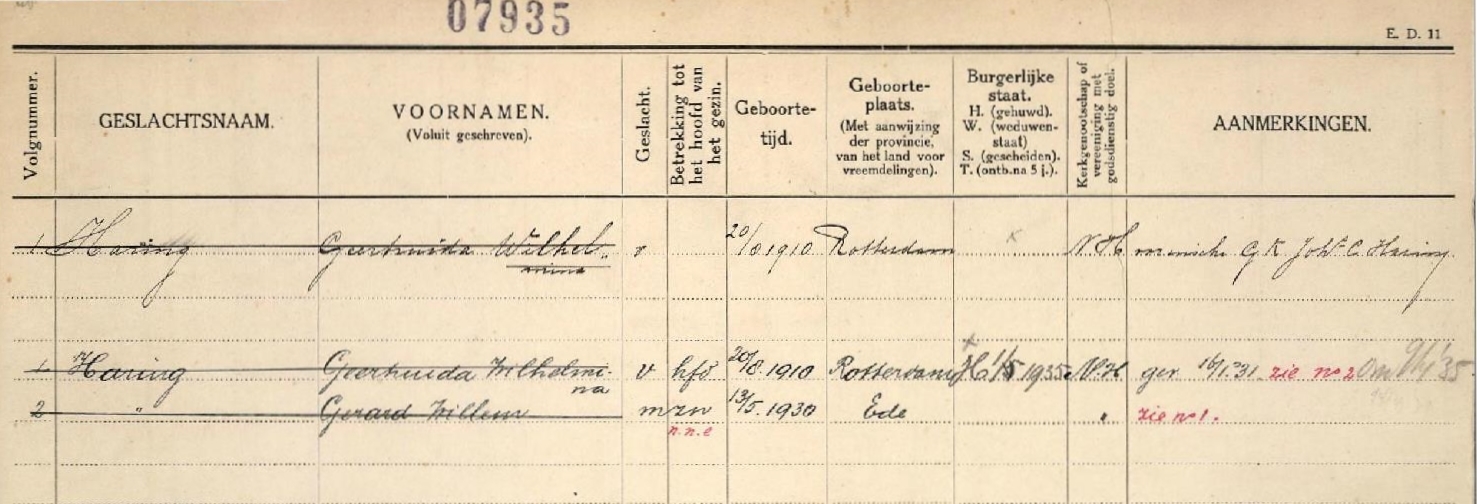 07935
E. D. 11
Volgnummer.
GESLACHTSNAAM.
VOORNAMEN.
(Voluit geschreven).
Geslacht.
Betrekking tot
het hoofd van
het gezin.
Geboorte-
tijd.
Geboorte-
plaats.
(Met aanwijzing
der provincie,
van het land voor
vreemdelingen).
Burgerlijke
staat.
H. (gehuwd).
W. (weduwen-
staat)
S. (gescheiden).
T. (ontb. na 5 j.).
Kerkgenootschap of
vereeniging met
godsdienstig doel.
AANMERKINGEN.
1 Haring Geertruida Wilhel- v 20/8 1910 Rotterdam N.H C. Haring
mina
1 Haring Geertruida Wilhelmi- v hfd 20/8 1910 Rotterdam H 1/5 1935 N.H ger 16/1.31. zie no 2
na
2 " Gerard Willem m zn 13/5. 1930 Ede " zie no 1.
n.n.e